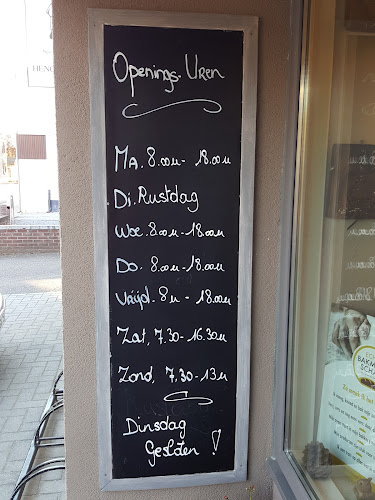 Openings. Uren
Ma. 8.00u - 18.00u
Di. Rustdag
Woe. 8.00u - 18.00u
Do. 8.00u - 18.00u
Vrijd. 8u - 18.00u
Zat, 7.30 - 16.30u
Zond, 7.30 - 13u
Dinsdag
Gesloten!